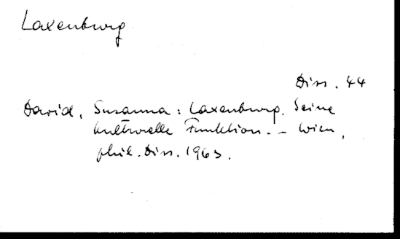 Laxenburg
Diss. 44
David, Susanna: Laxenburg. Seine
kulturelle Funktion. - Wien,
phil. Diss. 1963.